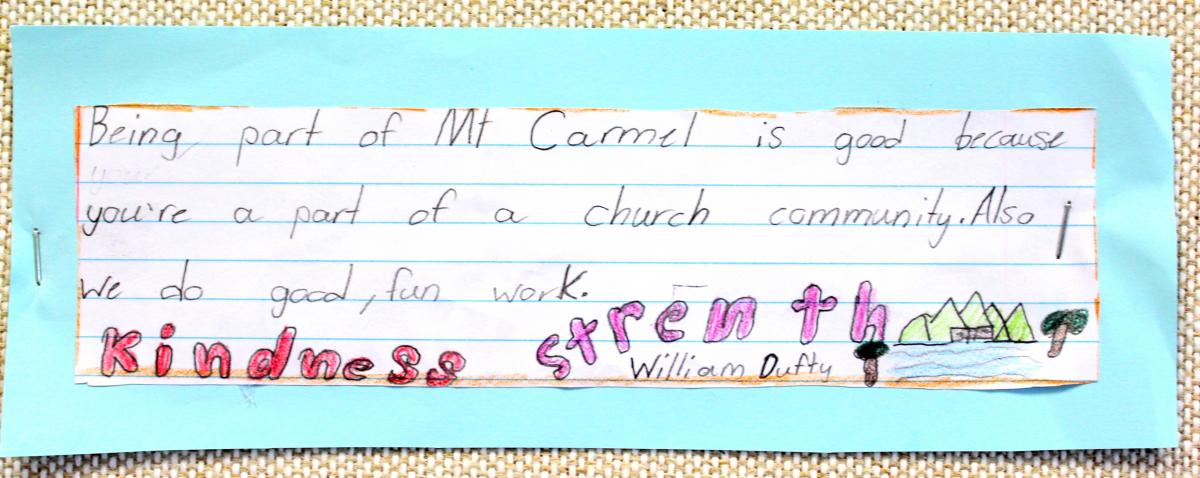 Being part of Mt Carmel is good because
you're a part of a church community. Also
we do good, fun work.
Kindness strenth
William Dufty